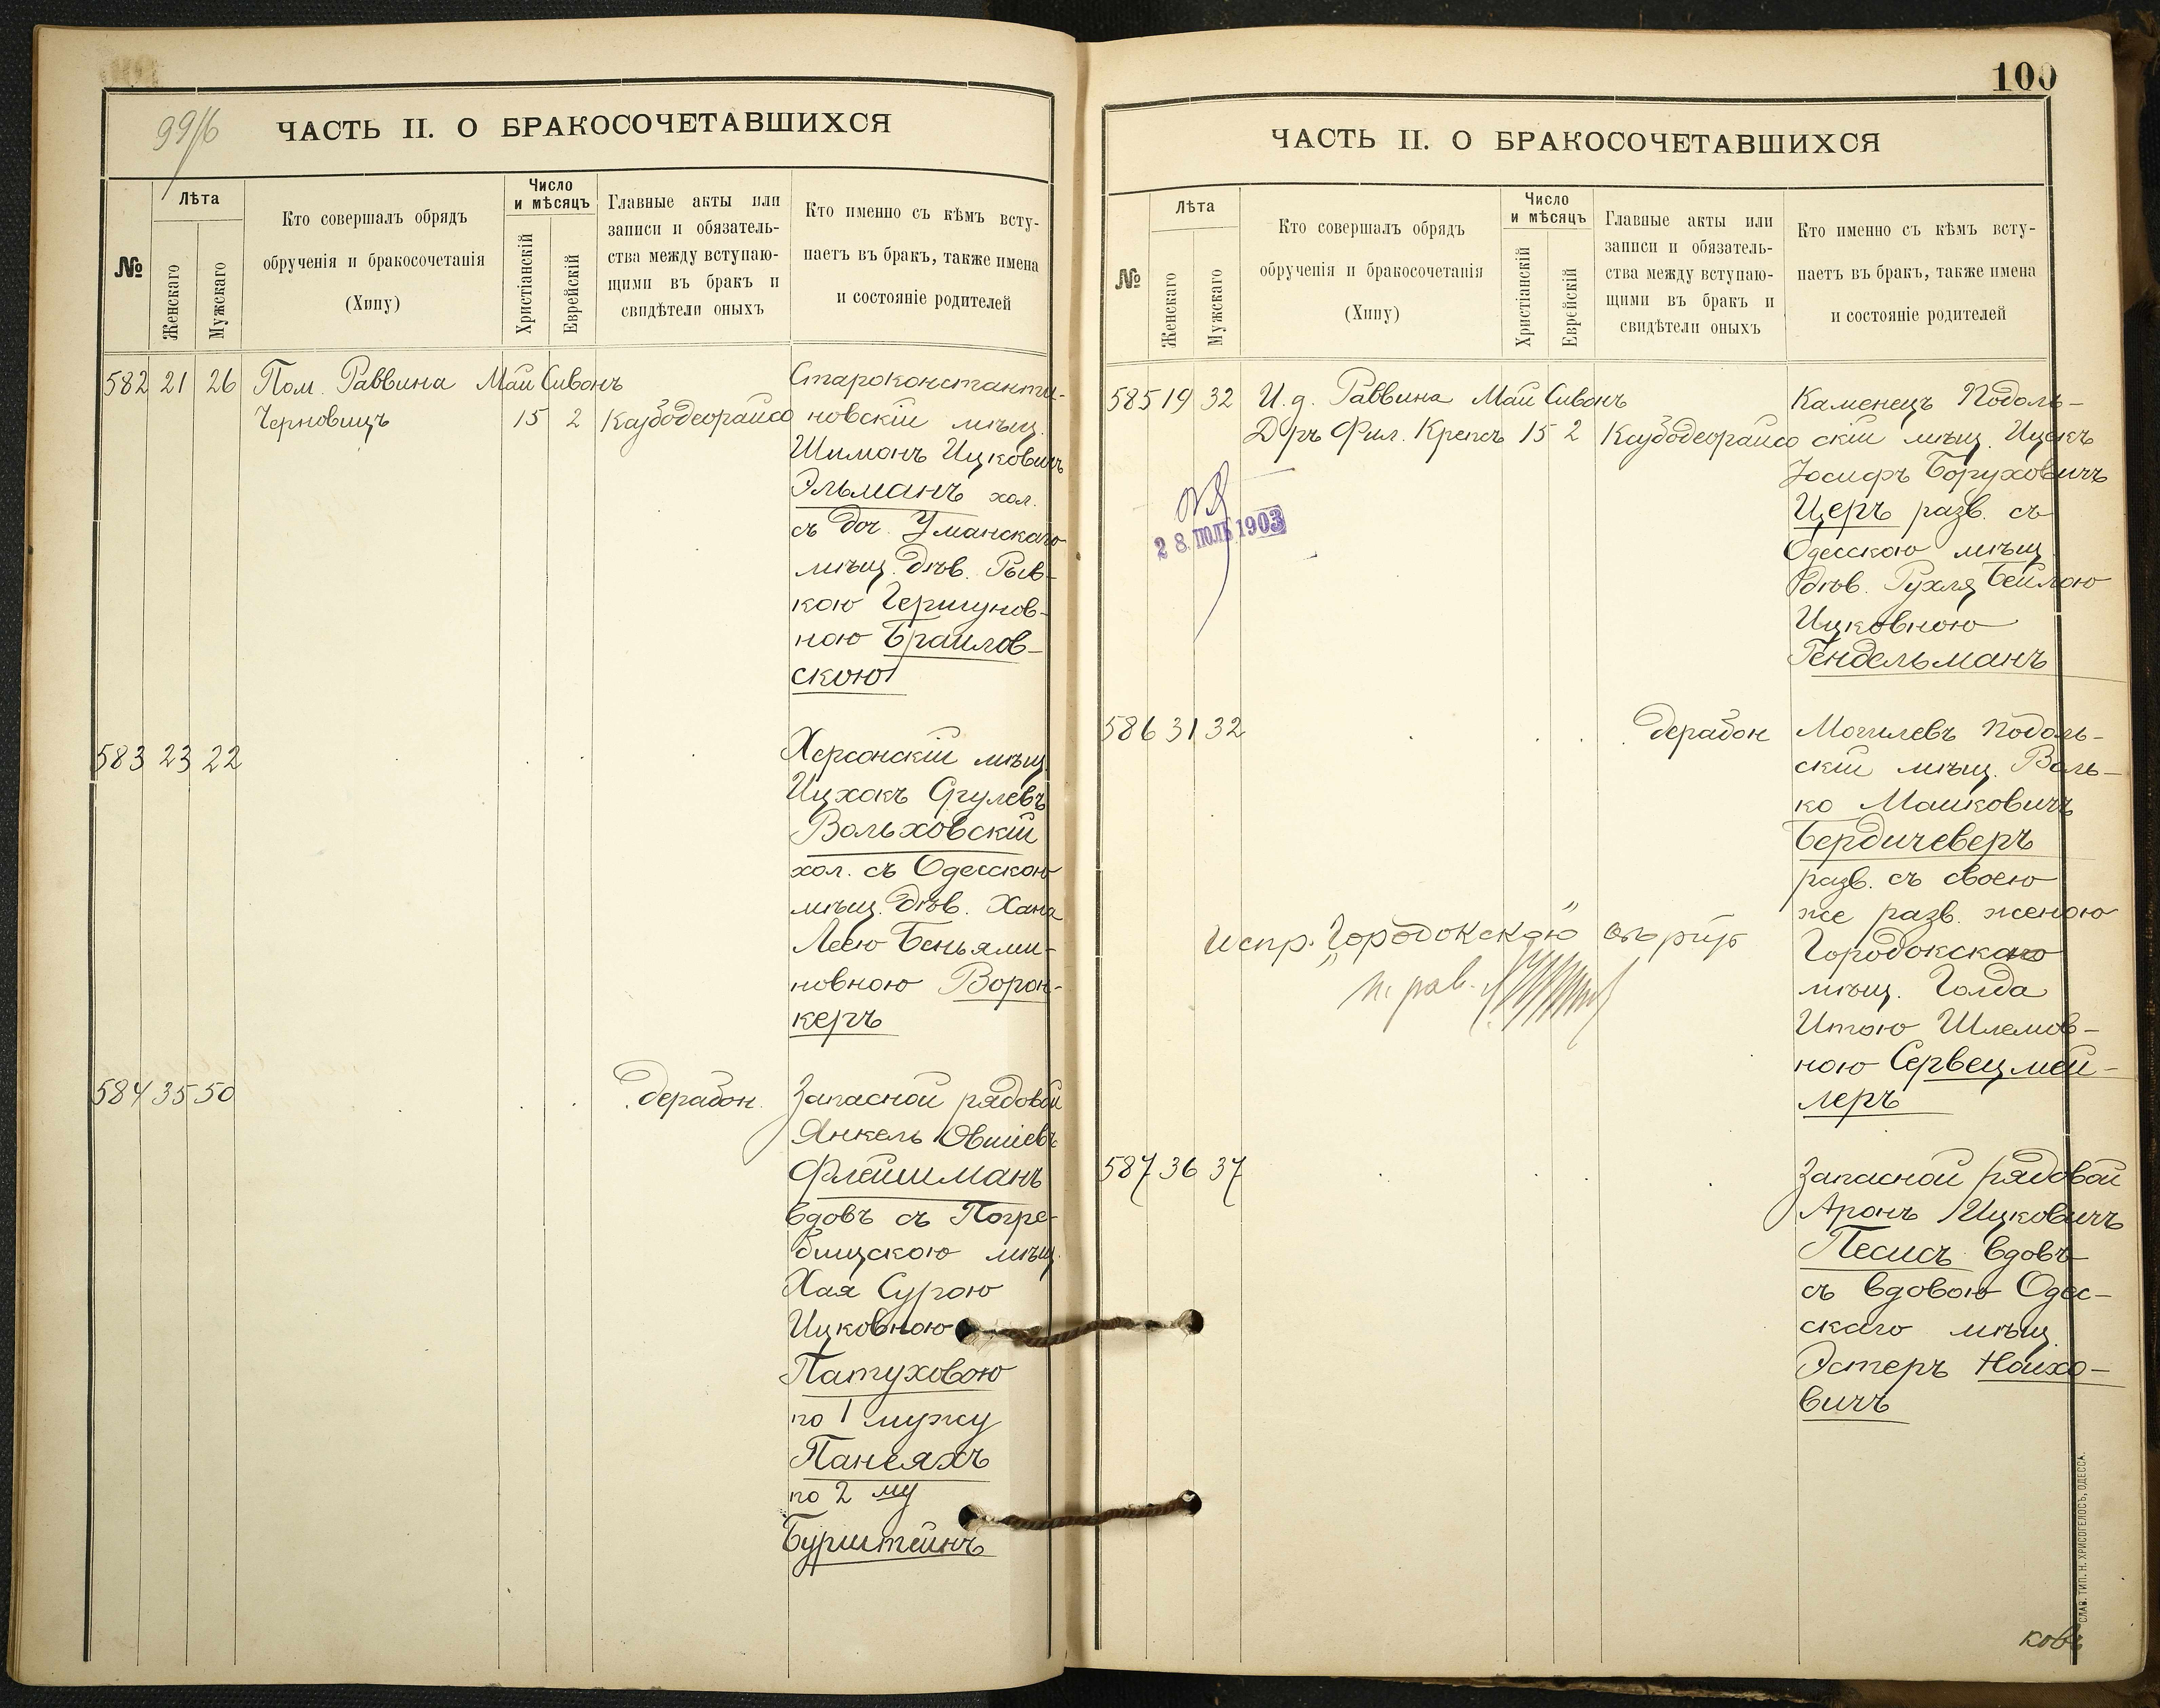 99/6
ЧАСТЬ II. О БРАКОСОЧЕТАВШИХСЯ
№
Лѣта
Женскаго
Мужскаго
Кто совершалъ обрядъ
обрученія и бракосочетанія
(Хипу)
Число
и мѣсяцъ
Христіанскій
Еврейскій
Главные акты или
записи и обязатель-
ства между вступаю-
щими въ бракъ и
свидѣтели оныхъ
Кто именно съ кѣмъ всту-
паетъ въ бракъ, также имена
и состояніе родителей
582 21 26 Пом. Раввина Май Сивонъ
Черновицъ 15 2 Каузбодеорайсо
Староконстанти-
новскій мѣщ.
Шимонъ Ицковичъ
Эльманъ хол.
съ доч. Уманскаго
мѣщ. дѣв. Рыв-
кою Гершунов-
ною Браилов-
скою
583 23 22
Херсонскій мѣщ.
Ицхокъ Срулевъ
Вольховскій
хол. съ Одесскою
мѣщ. дѣв. Хана
Леею Беньями-
новною Ворон-
керъ
584 35 50 дерабон.
Запасной рядовой
Янкель Овшіевъ
Флейшманъ
вдовъ съ Погре-
бищскою мѣщ.
Хая Сурою
Ицковною
Патуховою
по 1 мужу
Панеяхъ
по 2 му
Бурштейнъ
100
ЧАСТЬ II. О БРАКОСОЧЕТАВШИХСЯ
№
Лѣта
Женскаго
Мужскаго
Кто совершалъ обрядъ
обрученія и бракосочетанія
(Хипу)
Число
и мѣсяцъ
Христіанскій
Еврейскій
Главные акты или
записи и обязатель-
ства между вступаю-
щими въ бракъ и
свидѣтели оныхъ
Кто именно съ кѣмъ всту-
паетъ въ бракъ, также имена
и состояніе родителей
585 19 32 И. д. Раввина Май Сивонъ
Д ръ Фил. Крепсъ 15 2 Каузбодеорайсо
28 ІЮЛЬ 1903
Каменецъ Подоль-
скій мѣщ. Ицекъ
Іосифъ Боруховичъ
Церъ разв. съ
Одесскою мѣщ.
дѣв. Рухля Бейлою
Ицковною
Гендельманъ
586 31 32 дерабон
Могилевъ Подоль-
скій мѣщ. Воль-
ко Машковичъ
Бердичеверъ
разв. съ своею
же разв. женою
Городокскаго
мѣщ. Голда
Итою Шлемов-
ною Сервецмей-
леръ
Испр. "Городокскою"
п. рав.
587 36 37
Запасной рядовой
Аронъ Ицковичъ
Песисъ вдовъ
съ вдовою Одес-
скаго мѣщ.
Эстеръ Найхо-
вичъ
СЛАВ. ТИП. Н. ХРИСОГЕЛОСЪ, ОДЕССА.